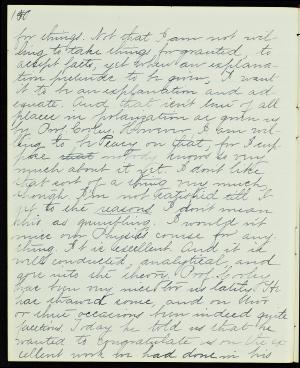 180
for things. Not that I am not wil-
ling to take things for granted, to
accept facts, yet when an explana-
tion pretends to be given, I want
it to be an explanation and ad-
equate. And that isn't true of all
places in polarization as given us
by Prof Cooley. However, I am wil-
ling to be easy on that, for I sup-
pose that nobody knows so very
much about it yet. I don't like
that sort of a thing very much,
though I'm not satisfied till I
get to the reasons. I don't mean
this as grumbling. I would not
miss our Physics course for any-
thing. It is excellent. And it is
well conducted, analytical, and
goes into the theory. Prof. Cooley
has been very nice to us lately. He
has thawed some, and on two
or three occasions been indeed quite
facetious. Today he told us that he
wanted to congratulate us on the ex-
cellent work we had done in his